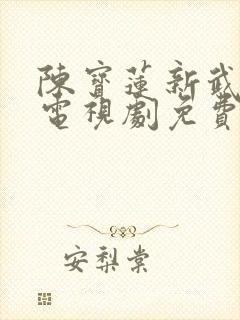 陳寶蓮新武
電視劇免費
安梨棠